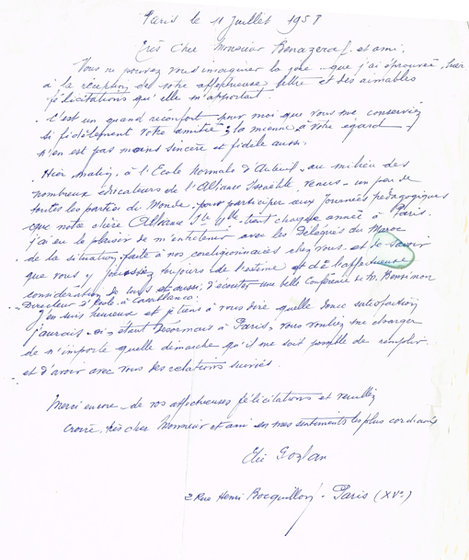 Paris le 11 Juillet 1958
Très Cher Monsieur Benazeraf, et ami,
Vous ne pouvez vous imaginer la joie que j'ai éprouvée, hier
à la réception de votre affectueuse lettre et des aimables
félicitations qu'elle m'apportait.
C'est un grand réconfort pour moi que vous me conserviez
si fidèlement votre amitié; la mienne à votre égard
n'en est pas moins sincère et fidèle aussi.
Hier matin, à l'Ecole Normale d'Auteuil, au milieu des
nombreux éducateurs de l'Alliance Israélite, venus un peu de
toutes les parties du Monde, pour participer aux Journées pédagogiques
que notre chère Alliance Ite Ulle tient chaque année à Paris.
j'ai eu le plaisir de m'entretenir avec les Délégués du Maroc
de la situation faite à nos coreligionnaires chez vous et de savoir
que vous y jouissez toujours de l'estime et de l'affectueuse
considération de tous et aussi, d'écouter une belle Conférence de M. Bensimon
Directeur d'Ecole à Casablanca.
J'en suis heureux et je tiens à vous dire quelle douce satisfaction
j'aurais si, étant désormais à Paris, vous vouliez me charger
de n'importe quelle démarche qu'il me soit possible de remplir
et d'avoir avec vous des relations suivies.
Merci encore de vos affectueuses félicitations et veuillez
croire, très cher Monsieur et ami en mes sentiments les plus cordiaux
Elie Gozlan
2 Rue Henri Bocquillon - Paris (XVe)